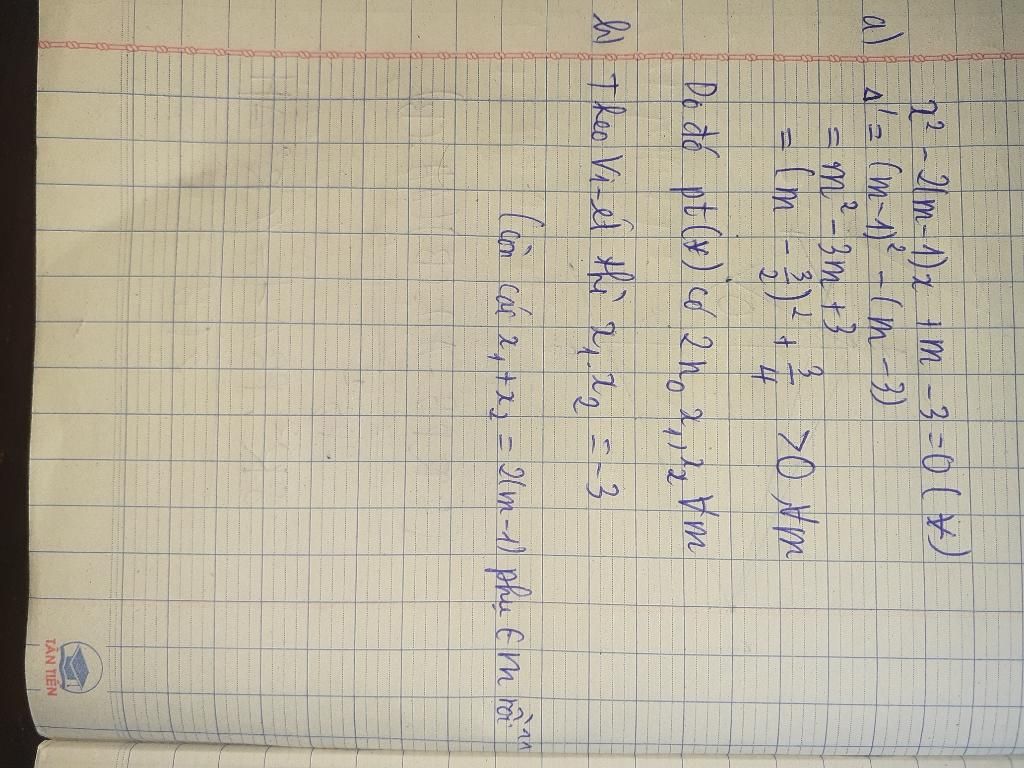 x² - 2(m-1)x + m - 3 = 0 (*)
a) Δ' = (m-1)² - (m-3)
= m² - 3m + 3
= (m - 3/2)² + 3/4 >0 ∀m
Do đó pt(*) có 2n₀ x₁, x₂ ∀m
b) Theo Vi-ét thì x₁.x₂ = -3
(còn cái x₁+x₂ = 2(m-1) phụ ∈ m rồi
TÂN TIẾN